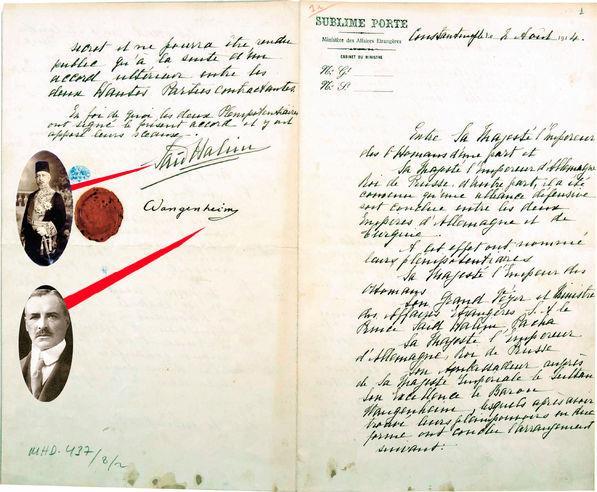 secret et ne pourra être rendu
public qu'à la suite d'un
accord ultérieur entre les
deux Hautes Parties contractantes.
En foi de quoi les deux Plénipotentiaires
ont signé le présent accord et y ont
apposé leurs sceaux.
Said Halim
Wangenheim
MHD. 437/2/2
1
SUBLIME PORTE
Ministère des Affaires Etrangères
CABINET DU MINISTRE
Constantinople 2 Août 1914.
No. G!
No. P.
Entre Sa Majesté l'Empereur
des Ottomans d'une part et
Sa Majesté l'Empereur d'Allemagne
Roi de Prusse, d'autre part, il a été
convenu qu'une alliance défensive
ont conclue entre les deux
Empires d'Allemagne et de
Turquie.
A cet effet ont nommé
leurs plénipotentiaires
Sa Majesté l'Empeur des
Ottomans.
Son Grand Vézir et Ministre
des Affaires Etrangères S. A. le
Prince Said Halim Pacha
Sa Majesté l'Empereur
d'Allemagne, Roi de Prusse
Son Ambassadeur auprès
de Sa Majesté Impériale le Sultan
Son Excellence le Baron
Wangenheim, lesquels après avoir
trouvé leurs pleinpouvoirs en due
forme ont conclu l'arrangement
suivant: